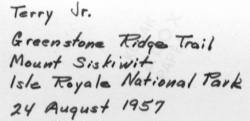 Terry Jr.
Greenstone Ridge Trail
Mount Siskiwit
Isle Royale National Park
24 August 1957